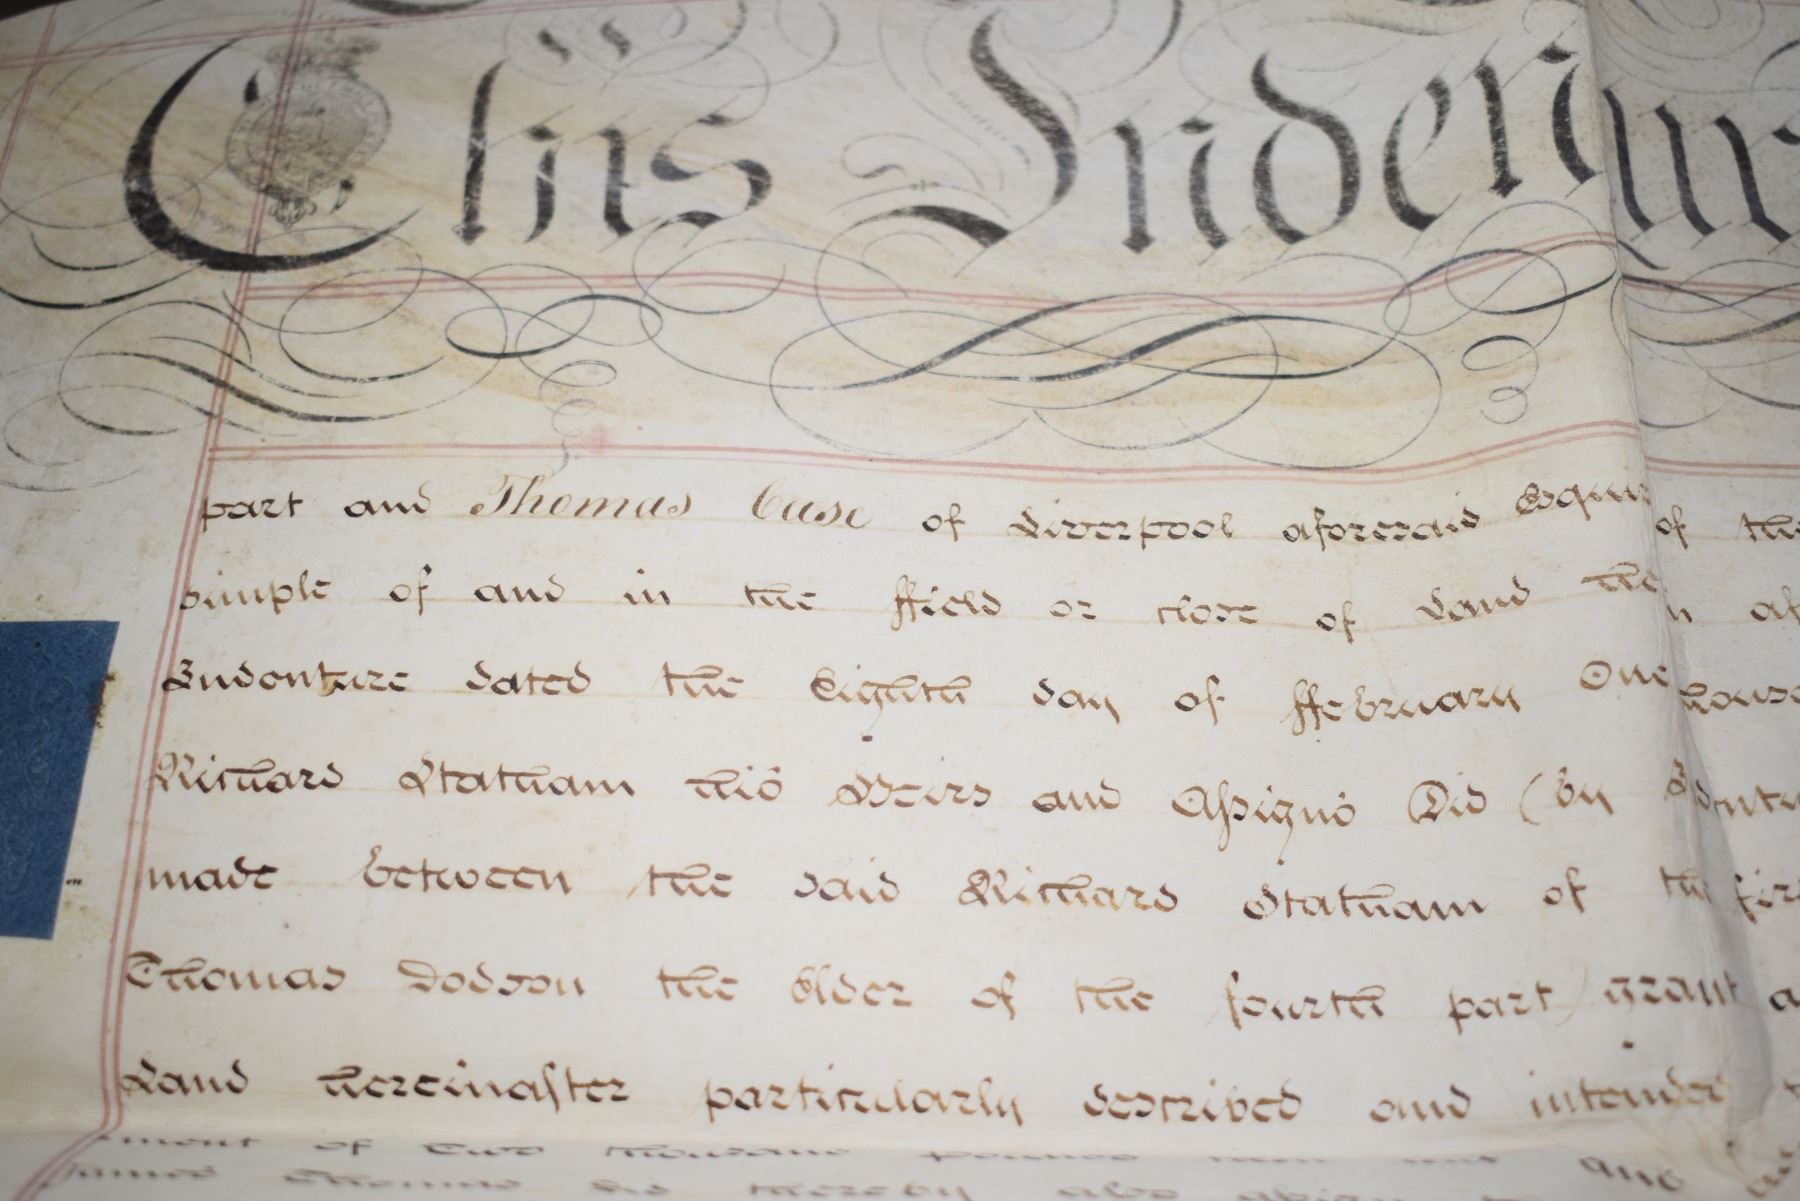 This Indenture
part and Thomas Case of Liverpool aforesaid Esquire of the
simple of and in the ffield or close of Land the
Indenture dated the Eighth day of ffebruary One
Richard Statham his Heirs and Assigns Did (by
made between the said Richard Statham of the
Thomas Dodson the Elder of the fourth part) grant
Land hereinafter particularly described and intended
of Two thousand pounds
James Thomas did thereby also